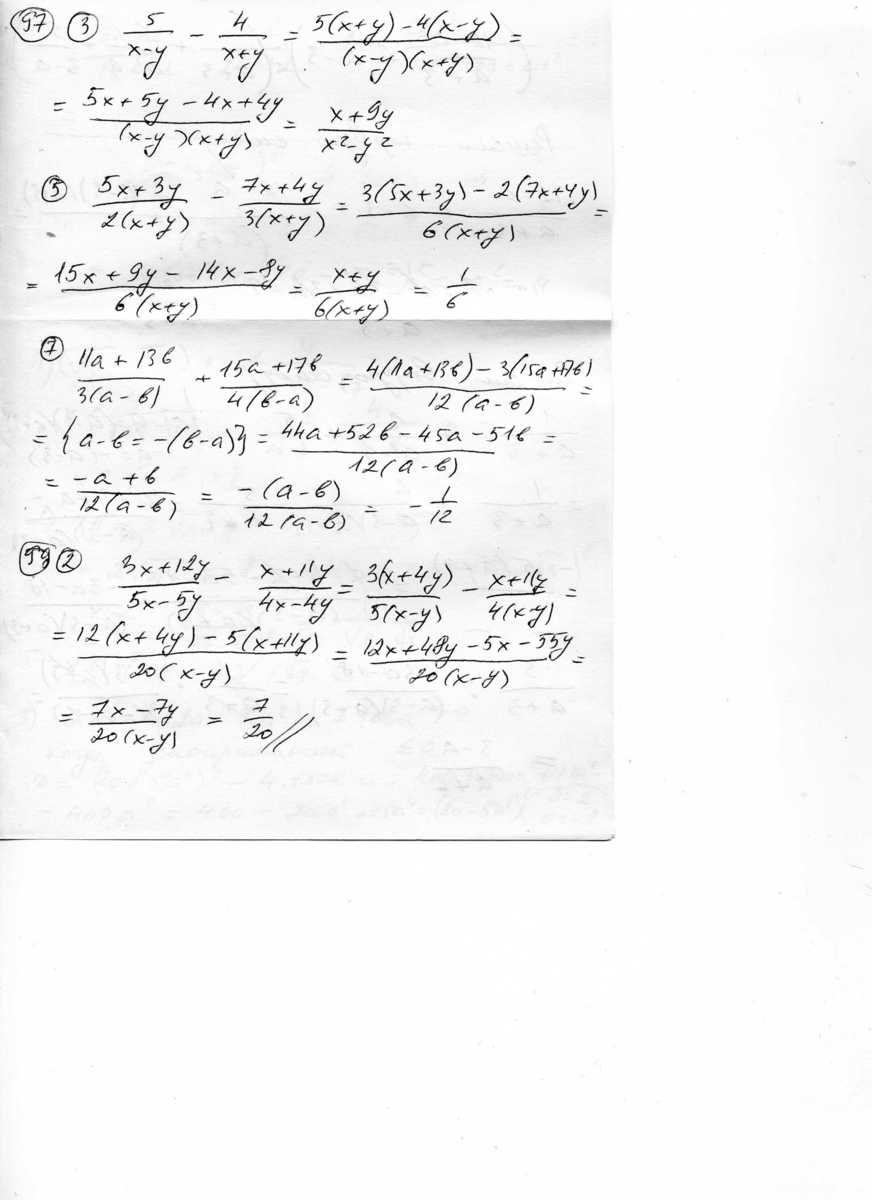 97 3 5/(x-y) - 4/(x+y) = (5(x+y) - 4(x-y))/((x-y)(x+y)) =
= (5x + 5y - 4x + 4y)/((x-y)(x+y)) = (x + 9y)/(x² - y²)
5 (5x + 3y)/(2(x+y)) - (7x + 4y)/(3(x+y)) = (3(5x + 3y) - 2(7x + 4y))/(6(x+y)) =
= (15x + 9y - 14x - 8y)/(6(x+y)) = (x+y)/(6(x+y)) = 1/6
7 (11a + 13в)/(3(a - в)) + (15a + 17в)/(4(в - a)) = (4(11a + 13в) - 3(15a + 17в))/(12(a - в)) =
= { a - в = -(в - a)} = (44a + 52в - 45a - 51в)/(12(a - в)) =
= (-a + в)/(12(a - в)) = (-(a - в))/(12(a - в)) = - 1/12
99 2 (3x + 12y)/(5x - 5y) - (x + 11y)/(4x - 4y) = (3(x + 4y))/(5(x-y)) - (x + 11y)/(4(x-y)) =
= (12(x + 4y) - 5(x + 11y))/(20(x-y)) = (12x + 48y - 5x - 55y)/(20(x-y)) =
= (7x - 7y)/(20(x-y)) = 7/20 //